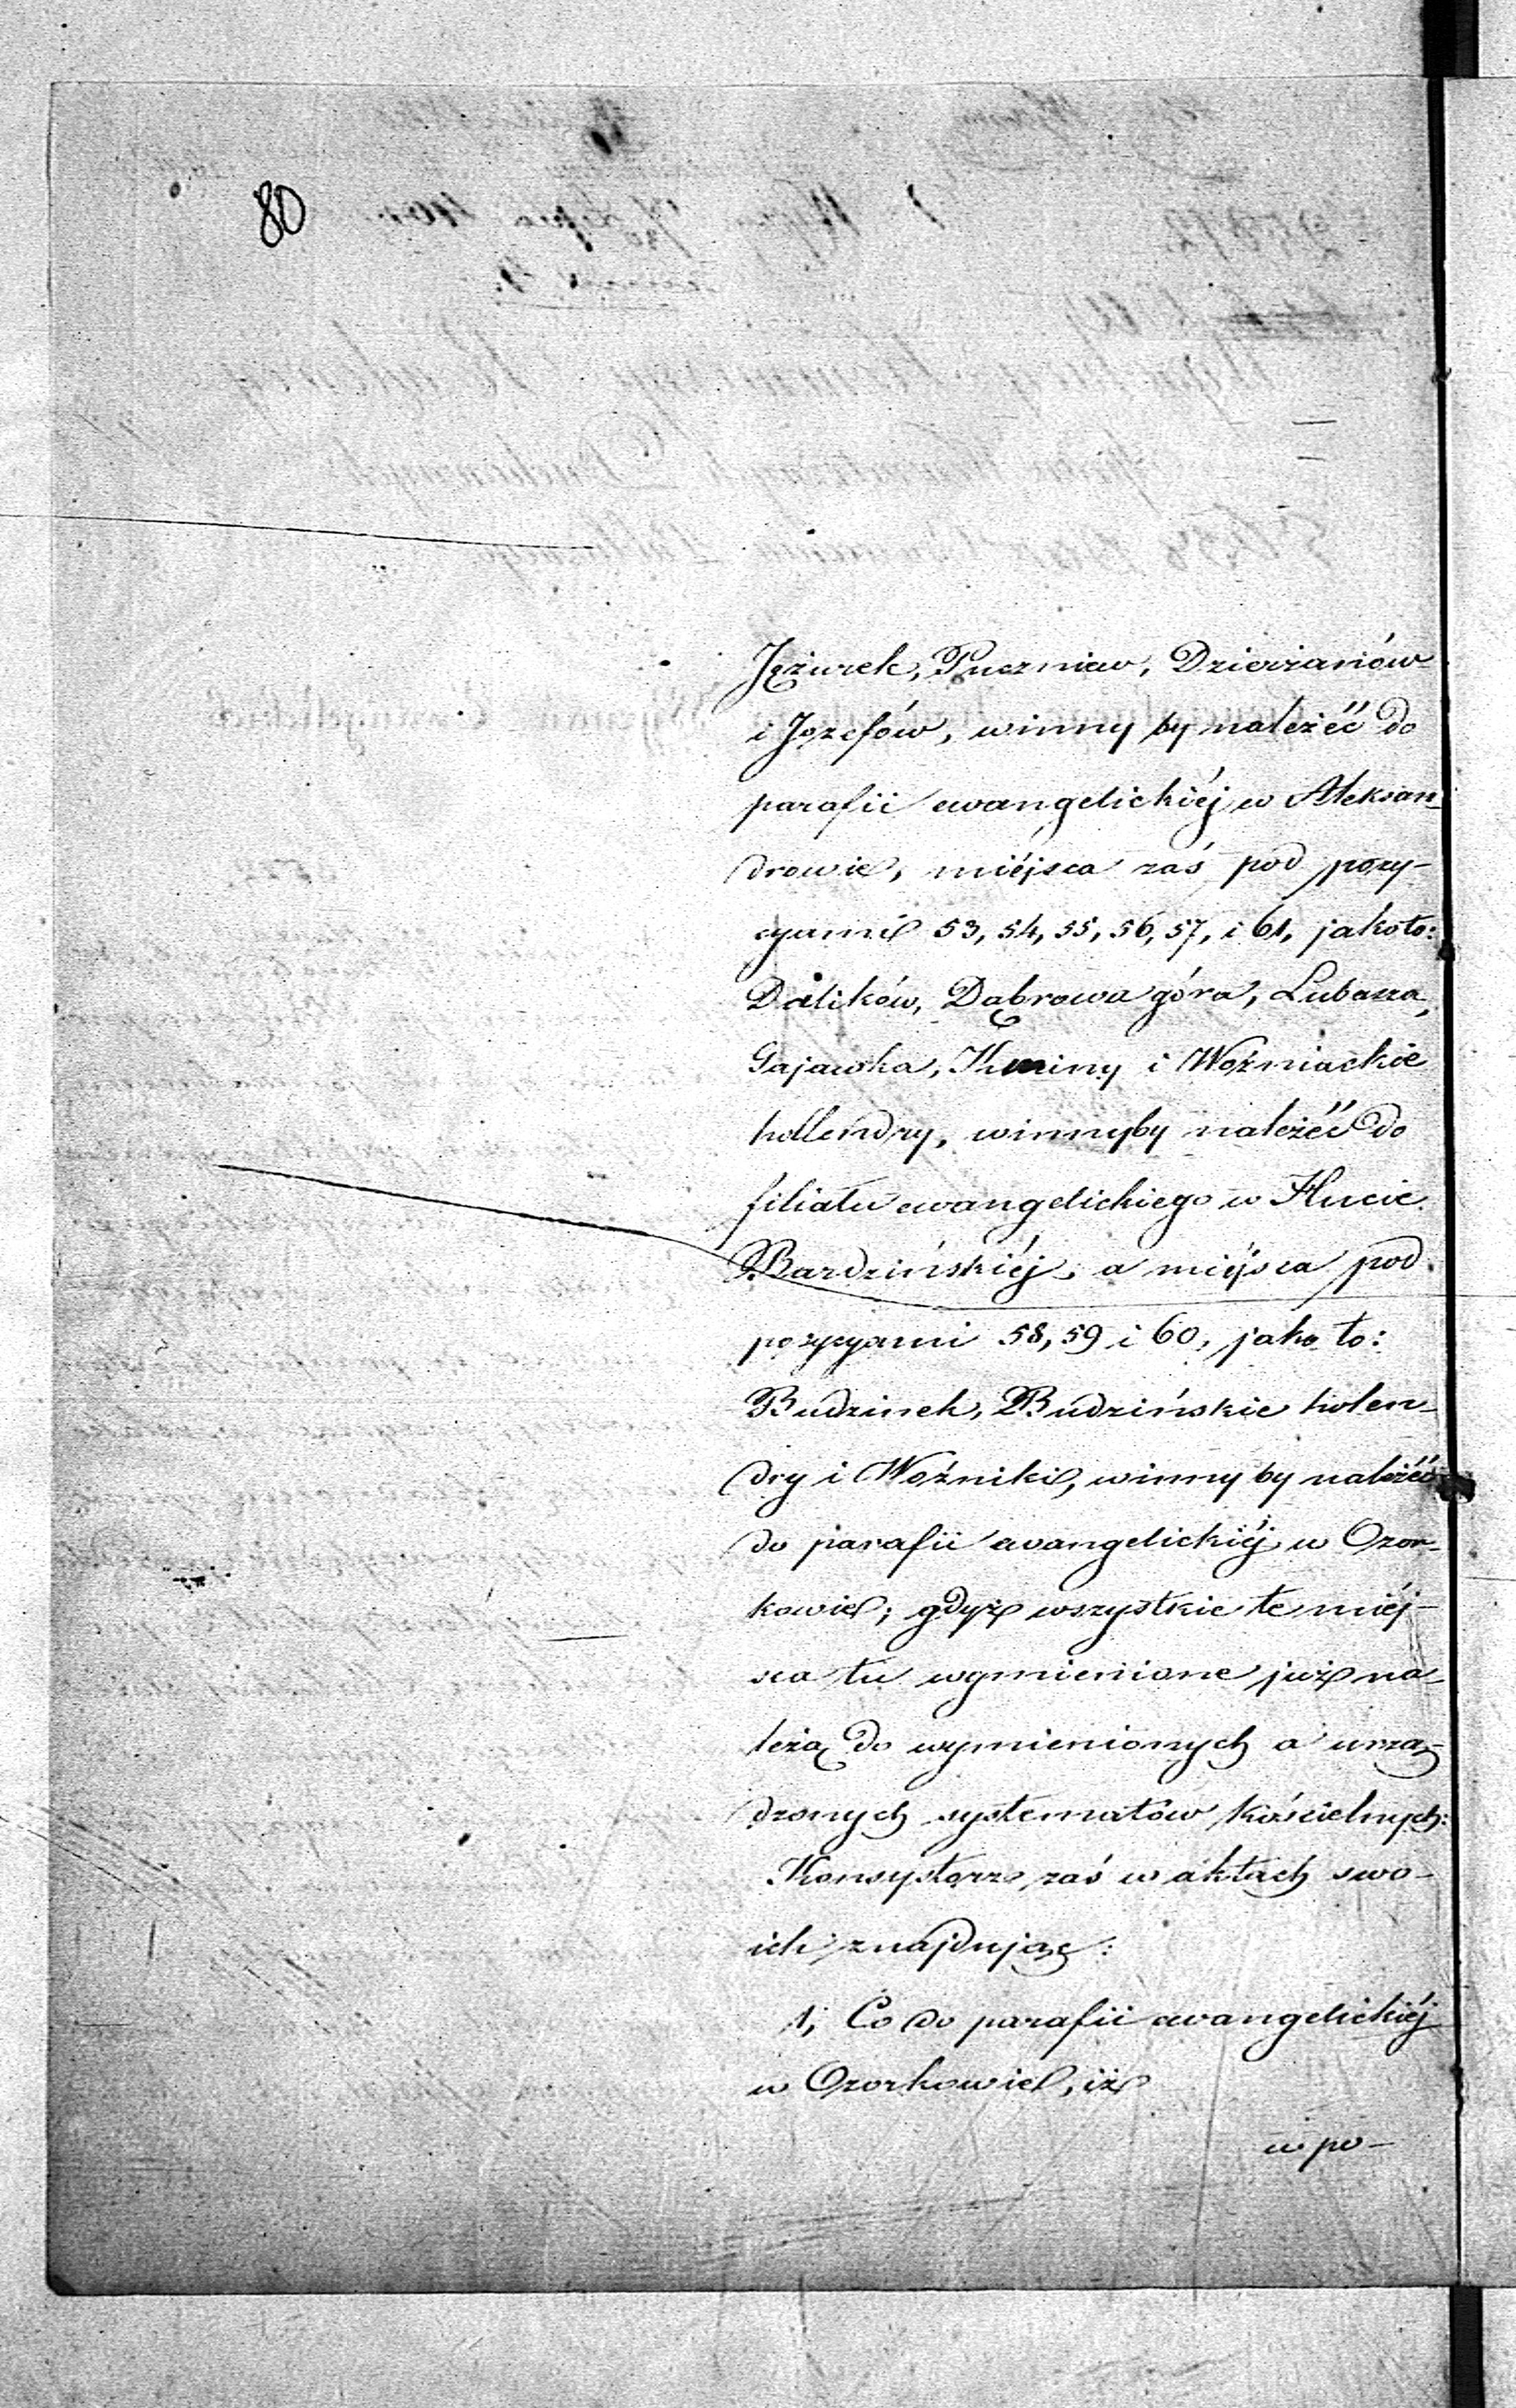 80
Jężurek, Puczniew, Dzierżanów
i Jozefów, winny by należéć do
parafii ewangelickiéj w Aleksan-
drowie, miéjsca zaś pod pozy-
cyami 53, 54, 55, 56, 57, i 61, jakoto:
Dalików, Dąbrowa góra, Lubasza,
Gajawka, Kminy i Woźniackie
hollendry, winnyby należéć do
filiału ewangelickiego w Hucie
Bardzińskiéj, a miéjsca pod
pozycyami 58, 59 i 60, jako to:
Budzinek, Budzińskie holen-
dry i Woźniki, winny by należéć
do parafii ewangelickiéj w Ozor-
kowie; gdyż wszystkie te miéj-
sca tu wymienione już na-
leżą do wymienionych a urzą-
dzonych systematów kościelnych:
Konsystorz zaś w aktach swo-
ich znajdując:
1, Co do parafii ewangelickiéj
w Ozorkowie, iż
w po-